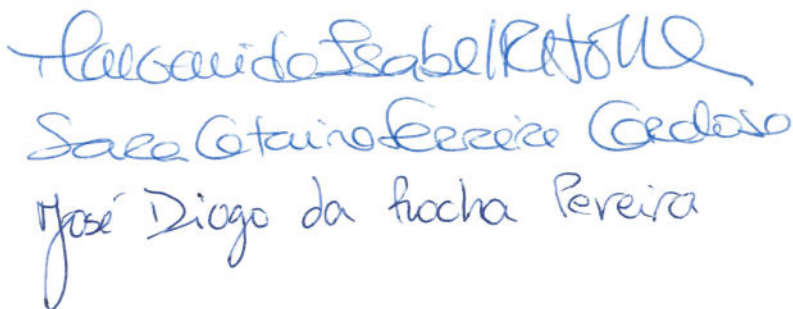 Margarida Isabel
Sara Catarina Ferreira Cardoso
José Diogo da Rocha Pereira